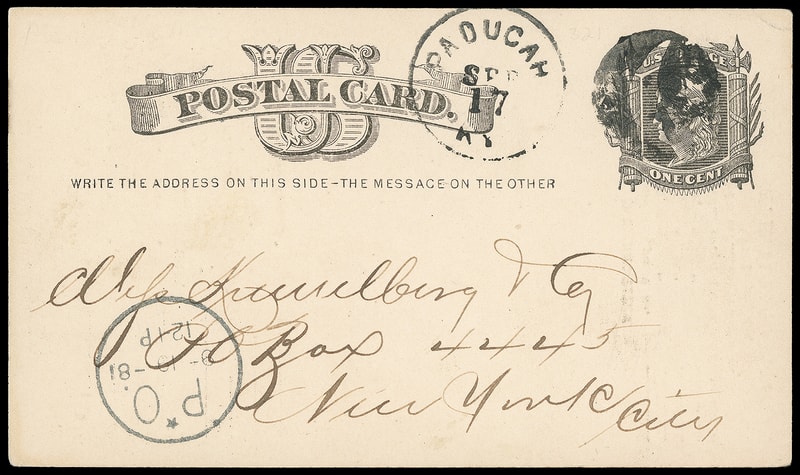 US
POSTAL CARD.
PADUCAH
SEP
17
KY
U.S. POSTAGE
ONE CENT
WRITE THE ADDRESS ON THIS SIDE-THE MESSAGE ON THE OTHER
& Co
PO Box 4445
New York City
P.O.
12 1 P